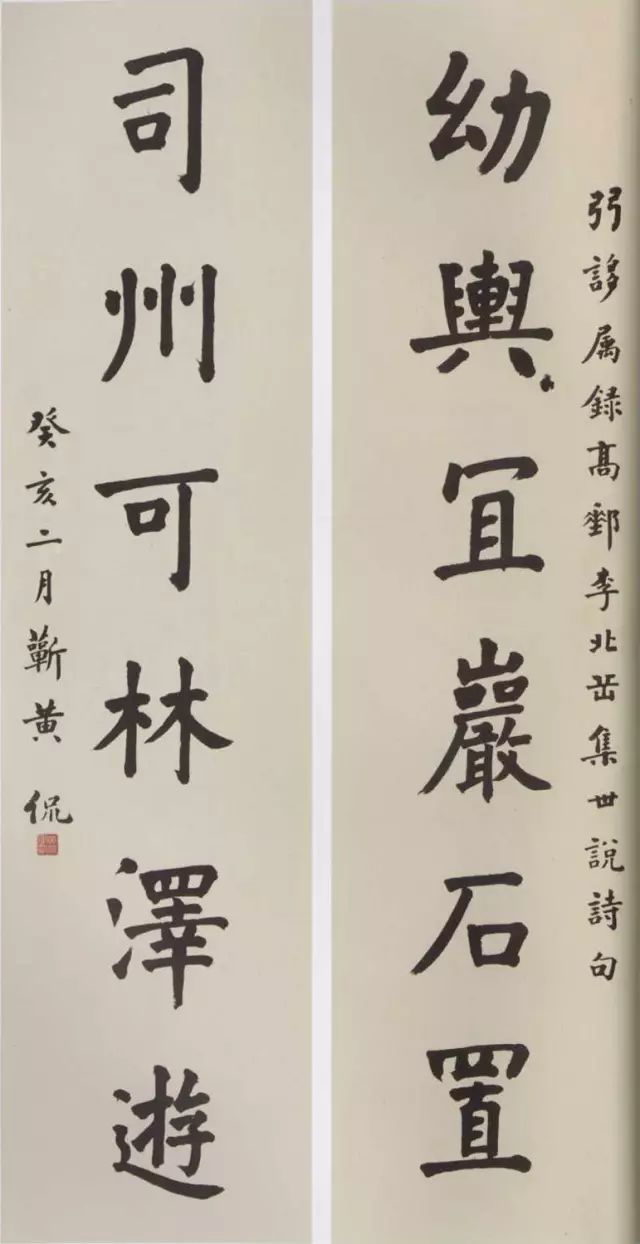 弜誃属録高郵李北岳集世說詩句
幼輿冝巖石置
司州可林澤遊
癸亥二月蘄黃侃